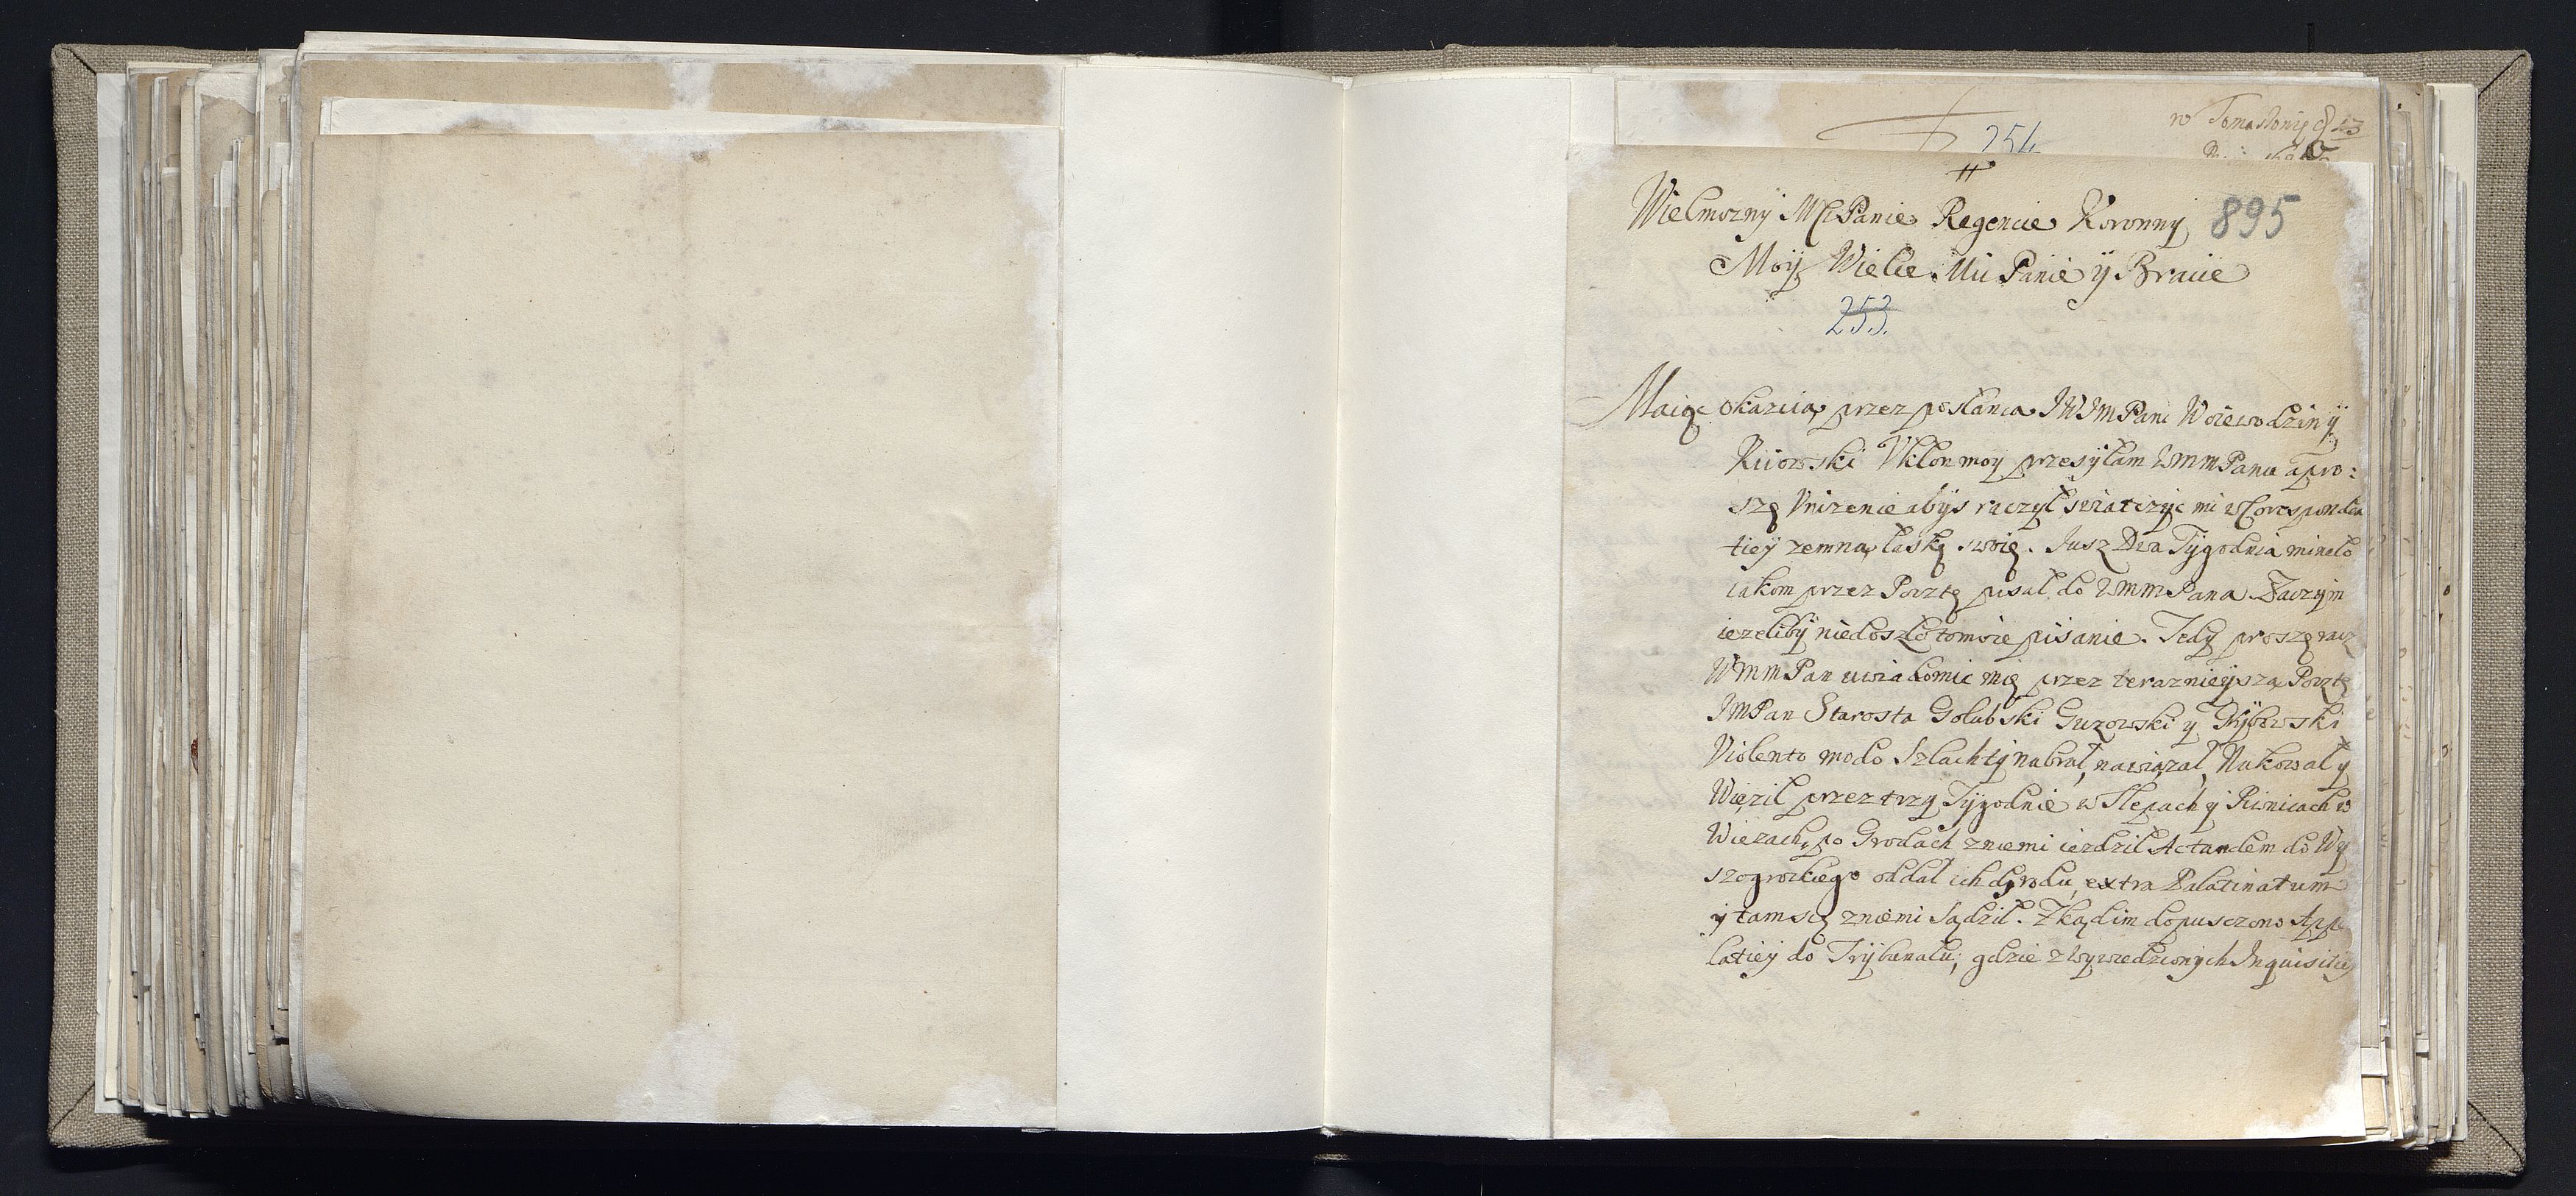 w Tomasłowych 13
254
Wielmozny MCi Panie Regencie Koronny
895
Moÿ Wielce Mci Panie ÿ Bracie
253
Maiąc okazÿią przez posłanca JWJmPani Woiewodzinÿ
Kiiowski Vkłon moy przesÿłam WmmPanu apro:
szę Vnizenie abÿs raczÿł swiatczÿc mi w Coresponden
tiey zemną łaskę swoię. Jusz Dwa Tÿgodnia mineło
iakom przez Pocztę pisał do WmmPana Zaczÿm
iezelibÿ niedoszło tomoie pisanie. Tedÿ proszę racz
WmmPan uwiadomic mię przez teraznieÿszą Pocztę
JMPan Starosta Golubski Guzowski y Kÿbowski
Violento modo Szlachtÿ nabrał, nawiązał, Nakował y
Więził przez trzy Tÿgodnie w Sklepach ÿ Piwnicach w
Wiezach, po Grodach zniemi iezdził Actandem do Wÿ
szogrockiego oddał ich dgrodu, extra Palatinatum
ÿ tam się zniemi Sądził. Zkądim dopusczono App
latiey do Trÿbunału, gdzie zwywiedzionych Inquisitiey